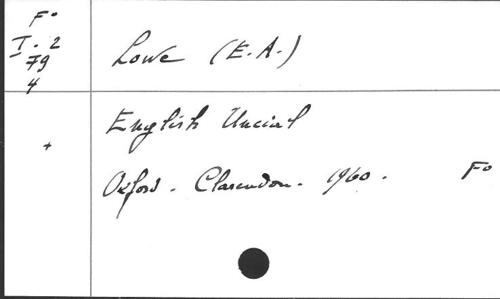 F°
I. 2
79
4
Lowe (E.A.)
English Uncial
+
Oxford. Clarendon. 1960. F°